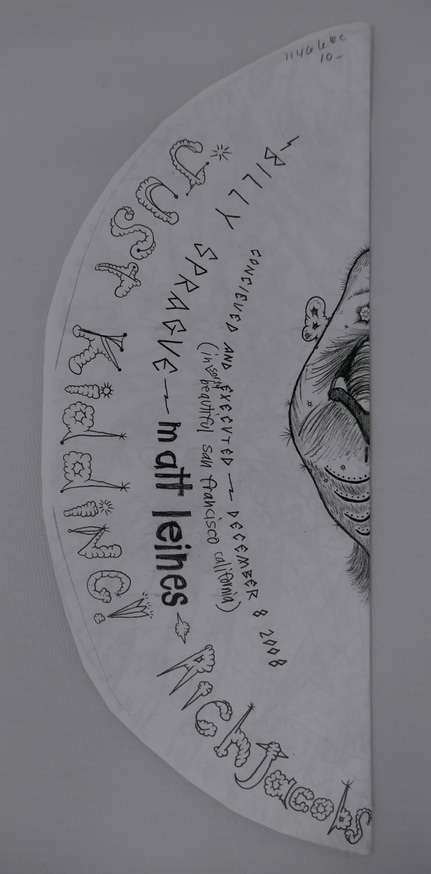 1146666c
10-
JUST KiddiNG!
BILLY SPRAGUE matt leines Rich Jacobs
CONCIEVED AND EXECUTED DECEMBER 8 2008
(in sorta beautiful san francisco california)